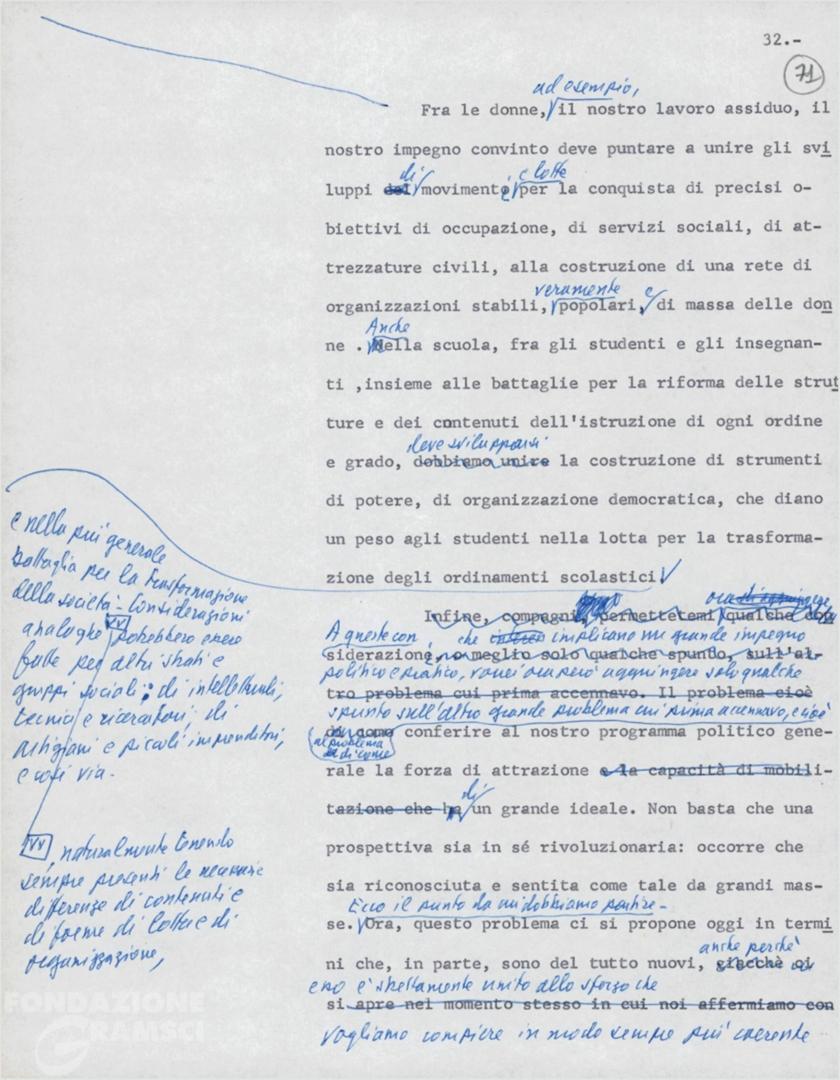 32.-
71
ad esempio,
Fra le donne, il nostro lavoro assiduo, il
nostro impegno convinto deve puntare a unire gli svi
di e lotte
luppi del movimento per la conquista di precisi o-
biettivi di occupazione, di servizi sociali, di at-
trezzature civili, alla costruzione di una rete di
veramente e
organizzazioni stabili, popolari, di massa delle don
Anche
ne . Nella scuola, fra gli studenti e gli insegnan-
ti ,insieme alle battaglie per la riforma delle strut
ture e dei contenuti dell'istruzione di ogni ordine
deve svilupparsi
e grado, dobbiamo unire la costruzione di strumenti
di potere, di organizzazione democratica, che diano
un peso agli studenti nella lotta per la trasforma-
zione degli ordinamenti scolastici
e nella più generale
battaglia per la trasformazione
della società. Considerazioni
analoghe VV potrebbero essere
fatte per altri strati e
gruppi sociali: di intellettuali,
tecnici e ricercatori, di
artigiani e piccoli imprenditori,
e così via.
VV, naturalmente tenendo
sempre presenti le necessarie
differenze di contenuti e
di forme di lotta e di
organizzazione,
Infine, compagni, permettetemi qualche con
A queste con che implicano un grande impegno
siderazione, o meglio solo qualche spunto, sull'al-
politico e pratico, vorrei ora però aggiungere solo qualche
tro problema cui prima accennavo. Il problema cioè
spunto sull'altro grande problema cui prima accennavo, e cioè
al problema di come
di come conferire al nostro programma politico gene-
rale la forza di attrazione e la capacità di mobili-
di
tazione che ha un grande ideale. Non basta che una
prospettiva sia in sé rivoluzionaria: occorre che
sia riconosciuta e sentita come tale da grandi mas-
Ecco il punto da cui dobbiamo partire.
se. Ora, questo problema ci si propone oggi in termi
anche perché
ni che, in parte, sono del tutto nuovi, giacchè ci
esso è strettamente unito allo sforzo che
si apre nel momento stesso in cui noi affermiamo con
vogliamo compiere in modo sempre più coerente
FONDAZIONE
GRAMSCI